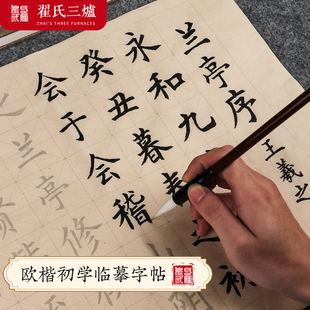 翟氏三爐
ZHAI'S THREE FURNACES
兰亭序
王羲之
永和九
癸丑暮春
会于会稽
兰亭
修
欧楷初学临摹字帖